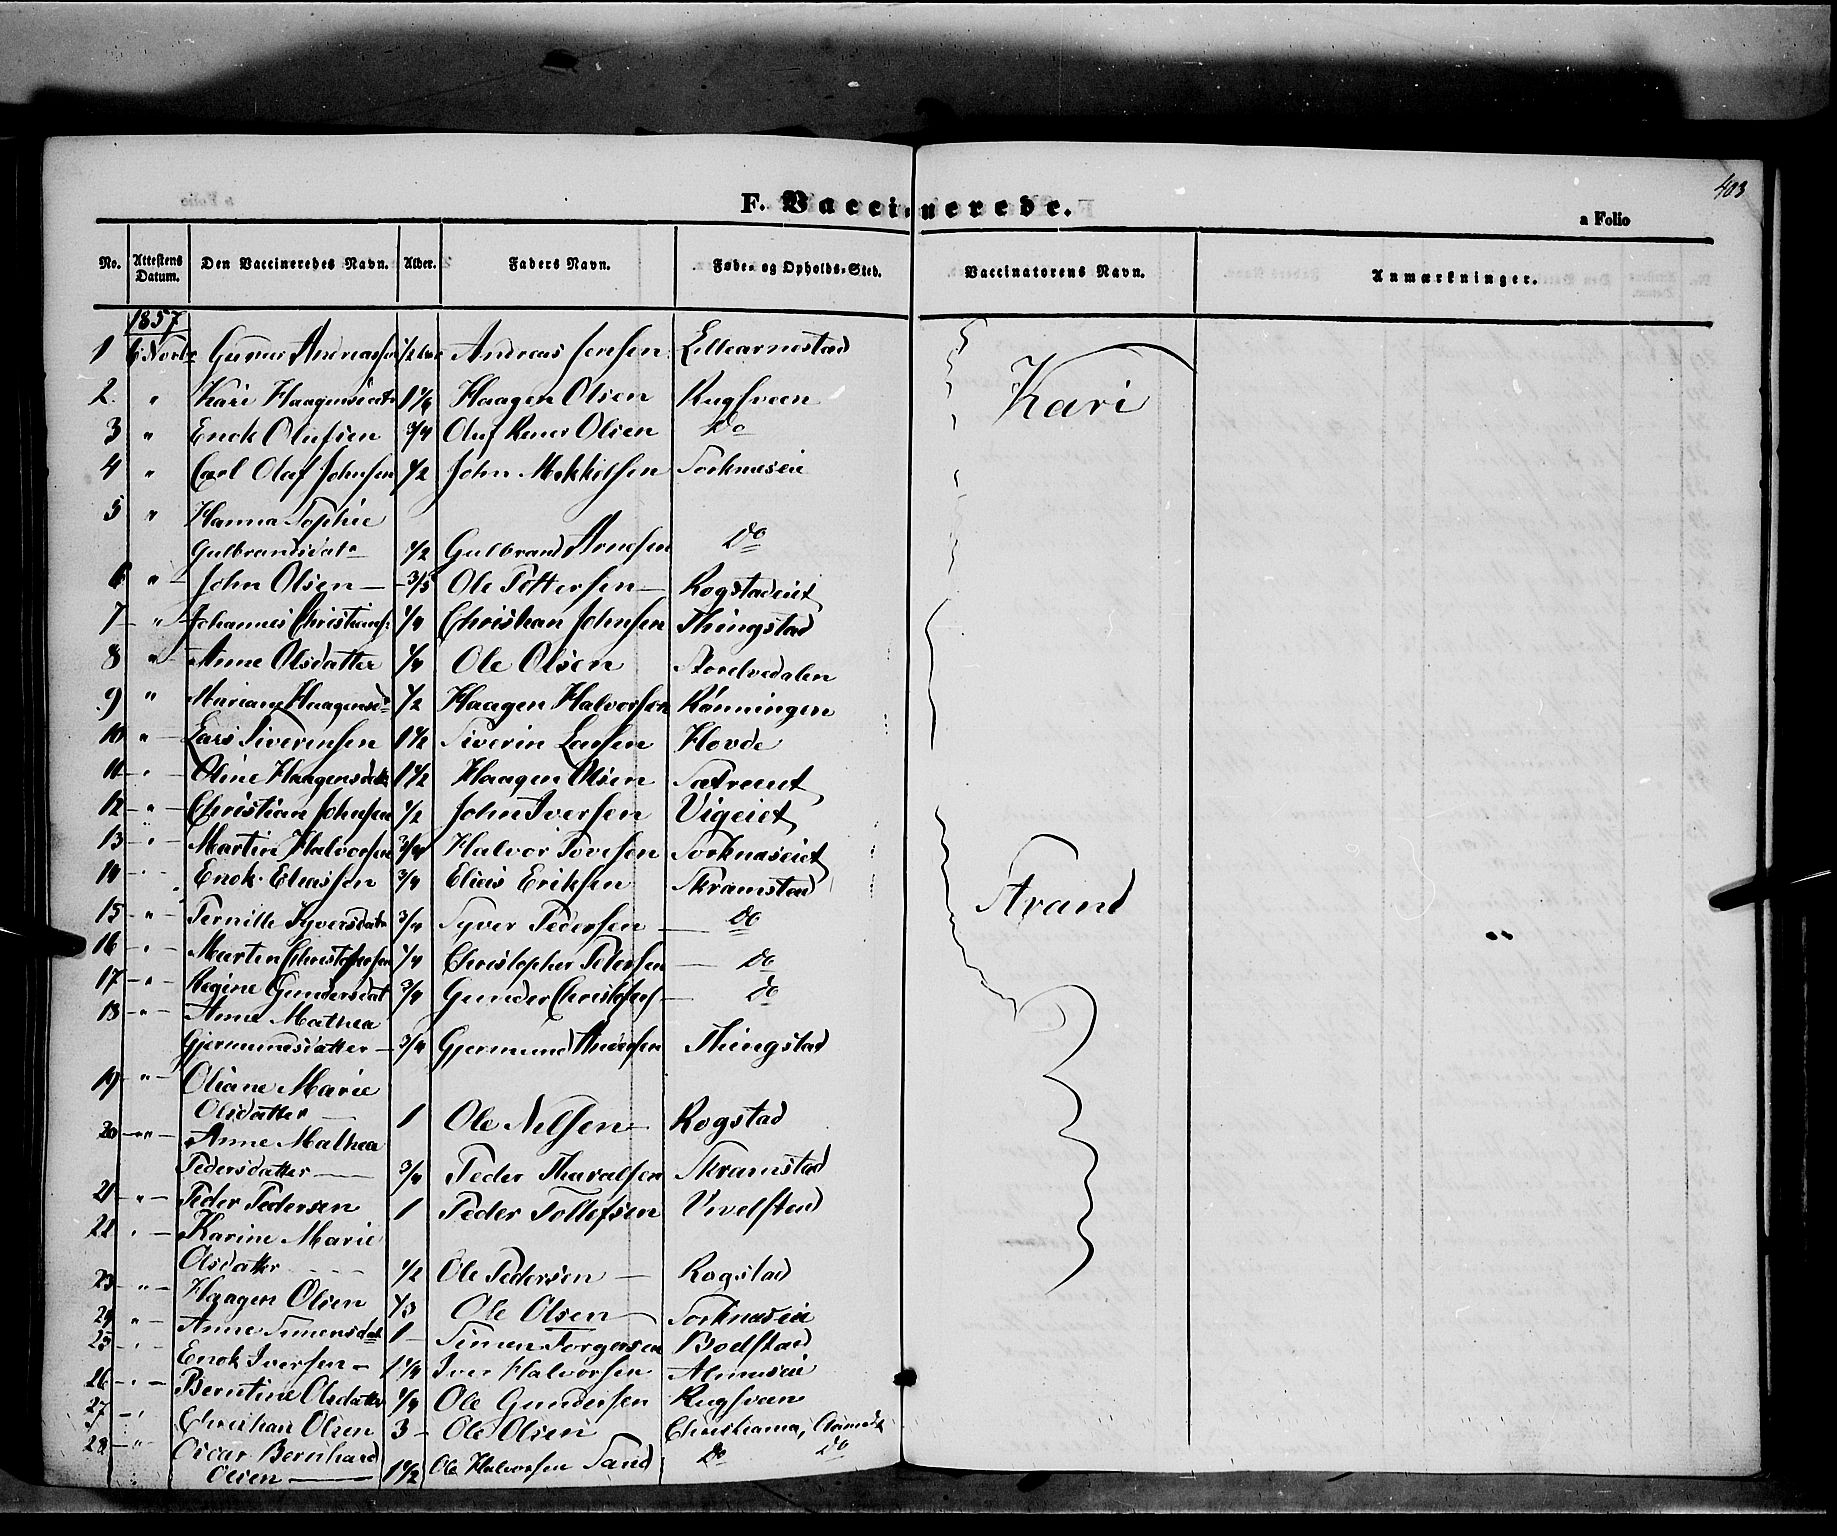 403
F. Vaccinerede.
a Folio
No. Attestens Datum. Den Vaccineredes Navn. Alder. Faders Navn. Føde- og Opholds-Sted. Vaccinatorens Navn. Anmærkninger.
1857
1 6 Novbr Gunnar Andreassen 1/2 Andreas Jensen Lillearnestad
2. " Kari Haagensdatr 1 1/4 Haagen Olsen Rugsveen Kari
3 " Enok Olufsen 3/4 Oluf Olsen Do
4 " Carl Olaf Johnsen 1/2 John Mikkelsen Sorknæseie
5 " Hanna Sophie
Gulbrandsdatr 1/2 Gulbrand Arnesen Do
6 " John Olsen — 3/5 Ole Pettersen — Rogstadeiet
7 " Johannes Christians: 1/4 Christian Johnsen Thingstad
8 " Anne Olsdatter 1/4 Ole Olsen Stordvedalen
9 " Mariane Haagensd. 1/2 Haagen Halvorsen Rönningen
10 " Lars Siverinsen 1 1/2 Siverin Larsen Hovde
11 " Oline Haagensdatr 1 1/2 Haagen Olsen Sætreeiet
12 " Christian Johnsen 1/2 John Iversen Vigeiet
13 " Martin Halvorsen 3/4 Halvor Tovesen Sorknæseiet
14 " Enok Eliassen 3/4 Elias Eriksen Skramstad Strand
15 " Pernille Syversdatr 3/4 Syver Pedersen — Do
16 " Martin Christophersen 1/4 Christopher Petersen — Do
17 " Regine Gundersdat 3/4 Gunder Christophers — Do
18 " Anne Mathea
Gjermundsdatter — 3/4 Gjermund Andersen Thingstad
19 " Oliane Marie
Olsdatter — 1 Ole Nilsen — Rogstad
20 " Anne Mathea
Pedersdatter — 3/4 Peder Tharalsen Skramstad
21 " Peder Pedersen 1 Peder Tollefsen Uvelstad
22 " Karine Marie
Olsdatter 1/2 Ole Pedersen — Rogstad
23 " Haagen Olsen 1/3 Ole Olsen Sorknæseie
24 " Anne Simensdatr 1 — Simen Torgersen Bodstad
25 " Enok Iversen — 1 1/4 Iver Halvorsen Almaseie
26 " Berntine Olsdatter 1/4 Ole Gundersen Rugsveen
27 " Christian Olsen 3 — Ole Olsen Christiania,
28 " Oscar Bernhard
Olsen — 1 1/2 Ole Halvorsen Sand Do Do